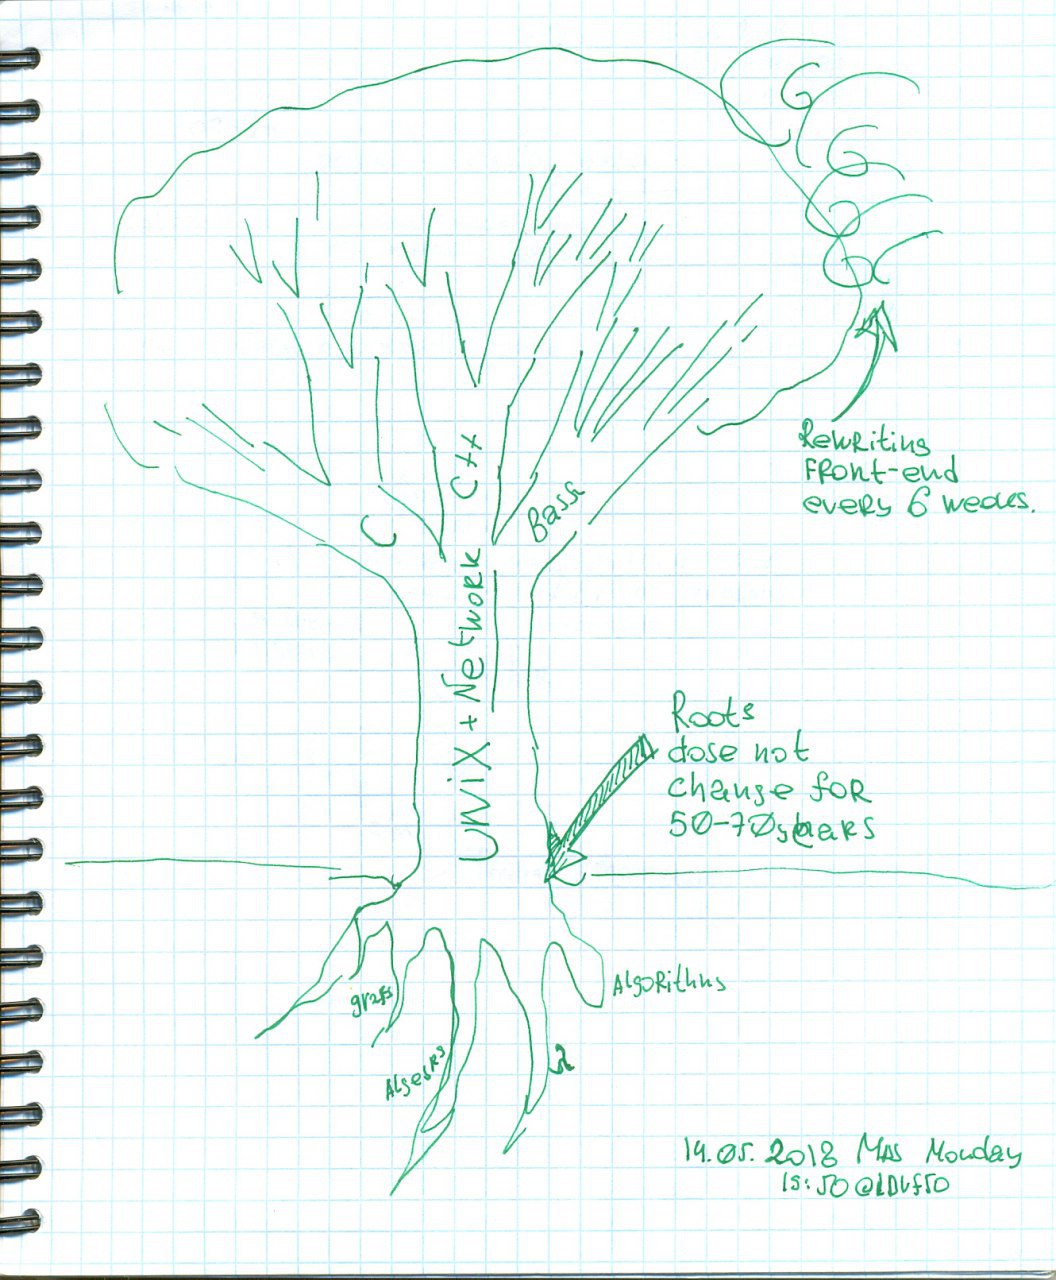 C
C++
Bash
Rewriting
Front-end
every 6 weeks.
UNiX + Network
Roots
dose not
change for
50-70 years
Algorithms
grafs
Algebra
λ
14.05.2018 Monday
15:50